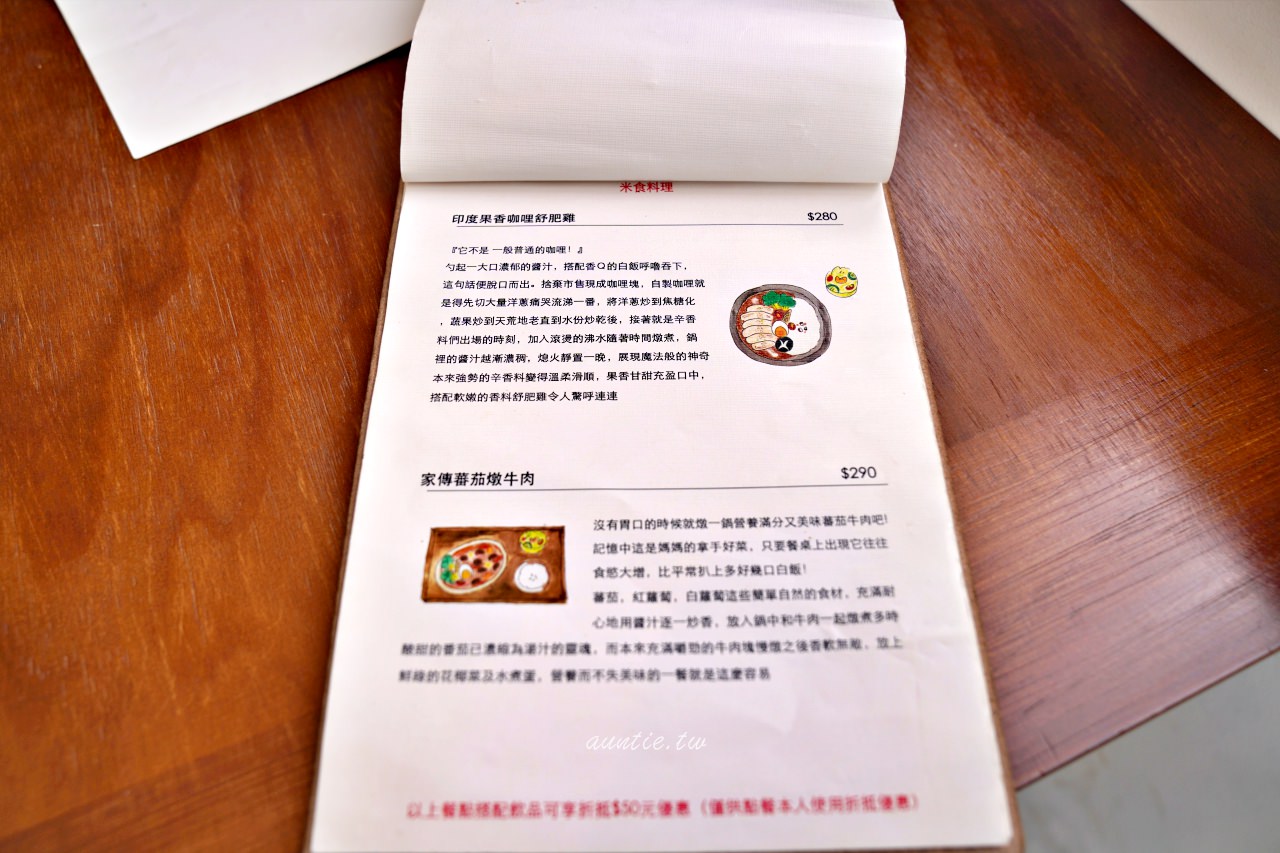 米食料理
印度果香咖哩舒肥雞 $280
『它不是一般普通的咖哩！』
勺起一大口濃郁的醬汁，搭配香Q的白飯呼嚕吞下，
這句話便脫口而出。捨棄市售現成咖哩塊，自製咖哩就
是得先切大量洋蔥痛哭流涕一番，將洋蔥炒到焦糖化
，蔬果炒到天荒地老直到水份炒乾後，接著就是辛香
料們出場的時刻，加入滾燙的沸水隨著時間燉煮，鍋
裡的醬汁越漸濃稠，熄火靜置一晚，展現魔法般的神奇
本來強勢的辛香料變得溫柔滑順，果香甘甜充盈口中，
搭配軟嫩的香料舒肥雞令人驚呼連連
家傳蕃茄燉牛肉 $290
沒有胃口的時候就燉一鍋營養滿分又美味蕃茄牛肉吧！
記憶中這是媽媽的拿手好菜，只要餐桌上出現它往往
食慾大增，比平常扒上多好幾口白飯！
蕃茄，紅蘿蔔，白蘿蔔這些簡單自然的食材，充滿耐
心地用醬汁逐一炒香，放入鍋中和牛肉一起燉煮多時
酸甜的番茄已濃縮為湯汁的靈魂，而本來充滿嚼勁的牛肉塊慢燉之後香軟無敵，放上
鮮綠的花椰菜及水煮蛋，營養而不失美味的一餐就是這麼容易
auntie.tw
以上餐點搭配飲品可享折抵$50元優惠（僅供點餐本人使用折抵優惠）